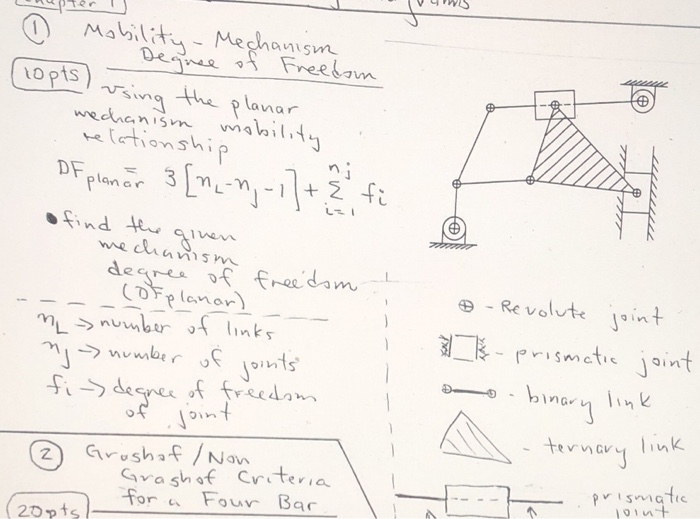 ① Mobility - Mechanism
Degree of Freedom
10pts
using the planar
mechanism mobility
relationship
DF planar = 3 [n_L - n_j - 1] + Σ_{i=1}^{n_j} f_i
• find the given
mechanism
degree of freedom
(DF planar)
n_L → number of links
n_j → number of joints
f_i → degree of freedom
of joint
⊕ - Revolute joint
- prismatic joint
- binary link
- ternary link
prismatic
joint
② Grashof / Non
Grashof Criteria
for a Four Bar
20pts